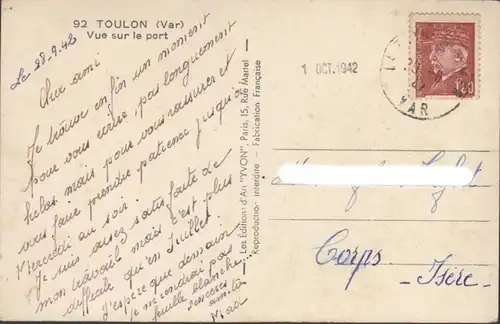 92 TOULON (Var)
Vue sur le port
Le 28.9.42
Cher ami
Je trouve enfin un moment
pour vous écrire, pas longuement
helas mais pour vous rassurer et
vous faire prendre patience jusqu'à
Mercredi au soir.
Je suis assez satisfaite de
mon travail mais c'est plus
difficile qu'en Juillet.
J'espère que demain
je ne rendrai pas
feuille blanche...
Sincères
amitiés
Les Editions d'Art "YVON", Paris, 15, Rue Martel
Reproduction interdite - Fabrication Française
1 OCT. 1942
VAR
1F20
Corps
- Isère -